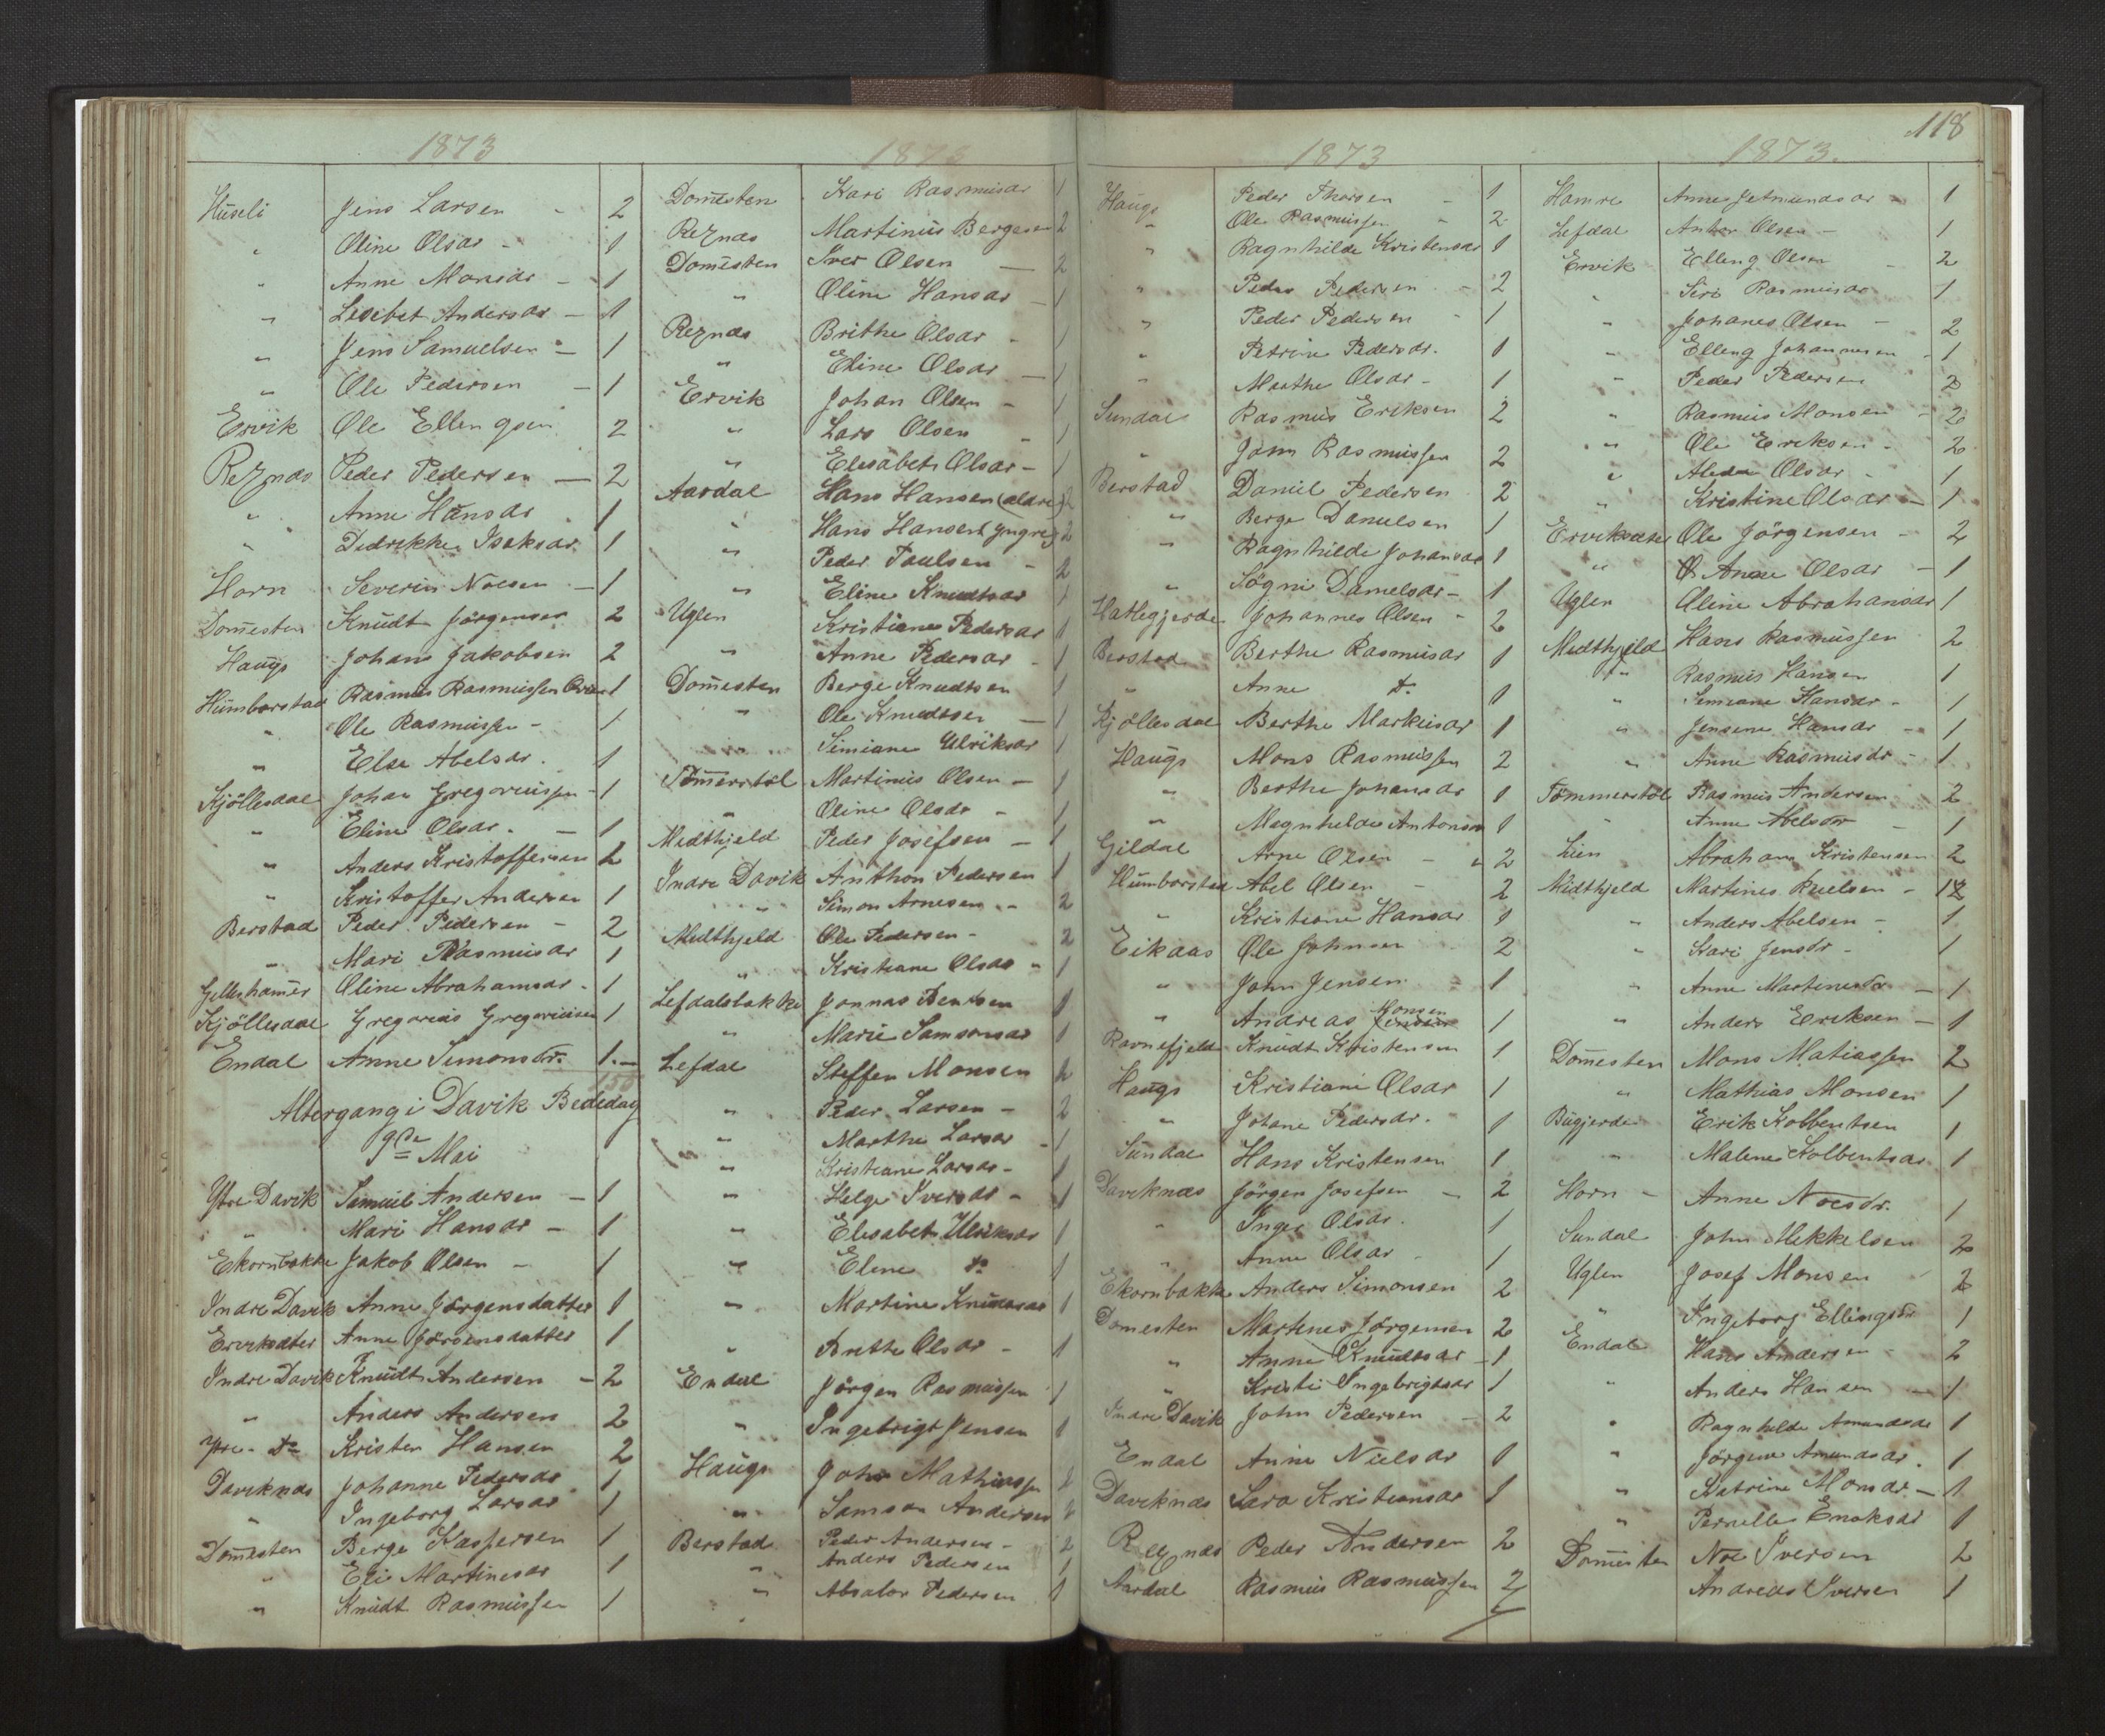 118
1873
Huseli Jens Larsen - 2
" Oline Olsdr - 1
" Anne Monsdr - 1
" Lisebet Andersdr - 1
" Jens Samuelsen - 1
" Ole Pedersen - 1
Ervik Ole Ellengsen 2
Reznæs Peder Pedersen - 2
" Anne Hansdr 1
" Didrikke Isaksdr 1
Horn Severin Noesen - 1
Domesten Knudt Jörgensen 2
Haugs Johans Jakobsen 2
Humborstad Rasmus Rasmussen 1
" Ole Rasmussen - 1
" Else Abelsdr. 1
Kjöllesdal Johan Gregoriussen - 1
" Eline Olsdr. - 1
" Anders Kristoffersen 2
" Kristoffer Andersen 1
Berstad Peder Pedersen - 2
" Mari Rasmusdr 1
Gilleshamer Oline Abrahamsdr - 1
Kjöllesdal Gregorius Gregoriussen 1
Endal Anne Simonsdr. 1 -
150
Altergang i Davik Bededag
9de Mai
Ytre Davik Samuel Andersen - 1
" Mari Hansdr - 1
Ekornbakke Jakob Olsen - 1
Indre Davik Anne Jörgensdatter 1
Erviksæter Anne Jörgensdatter 1
Indre Davik Knudt Andersen - 2
" Anders Andersen 2
Ytre do Kristen Hansen 2
Daviknæs Johanne Pedersdr 1
" Ingeborg Larsdr 1
Domesten Berge Kaspersen 1
" Eli Martinusdr 1
" Knudt Rasmussen 1
1873
Domesten Kari Rasmusdr 1
Reznæs Martinus Bergesen 2
Domesten Iver Olsen - 2
" Oline Hansdr - 1
Reznæs Brithe Olsdr - 1
" Eline Olsdr - 1
Ervik Johan Olsen - 1
" Lars Olsen - 1
" Elesabet Olsdr - 1
Aardal Hans Hansen (ældre) 2
" Hans Hansen (yngre) 2
" Peder Paulsen - 2
" Eline Knudtsdr 1
Uglen Kristiane Pedersdr 1
" Anne Pedersdr - 1
Domesten Berge Knudtsen 1
" Ole Knudtsen - 1
" Simiane Ulriksdr 1
Tömmerstöl Martinus Olsen - 1
" Oline Olsdr - 1
Midthjeld Peder Josefsen - 1
Indre Davik Anthon Pedersen 1
" Simon Arnesen - 2
Midthjeld Ole Pedersen - 2
" Kristiane Olsdr - 1
Lefdalsbakke Jonnas Bentsen 1
" Marie Samsonsdr 1
Lefdal Steffen Monsen 2
" Peder Larsen - 2
" Marthe Larsdr - 1
" Kristiane Larsdr - 1
" Helge Iversdr - 1
" Elesabet Ulriksdr 1
" Eline do 1
" Martine Knudtsdr 1
" Brithe Olsdr - 1
Endal Jörgen Rasmussen 1
" Ingebrigt Jensen 1
Haugs John Mathiassen 2
" Samson Andersen 2
Berstad Peder Andersen - 2
" Anders Pedersen 1
" Absalor Pedersen 1
1873
Haugs Peder Thorsen - 1
" Ole Rasmussen - 2
" Ragnhilde Kristensdr 1
" Peder Pedersen - 2
" Peder Pedersen - 1
" Petrine Pedersdr. 1
" Marthe Olsdr - 1
Sundal Rasmus Eriksen 2
" Jens Rasmussen 2
Berstad Daniel Pedersen 2
" Berge Danielsen 1
" Ragnhilde Johansdr 1
" Sögni Danielsdr - 1
Hatlegjerde Johannes Olsen - 2
Berstad Berthe Rasmusdr 1
" Anne do 1
Kjöllesdal Berthe Markusdr 1
Haugs Mons Rasmussen 2
" Berthe Johansdr 1
" Magnhilde Antonsdr 1
Gildal Arne Olsen - 2
Humborstad Abel Olsen - 2
" Kristiane Hansdr 1
Eikaas Ole Johnsen 2
" John Jensen - 1
" Andreas Monsen 1
Ravnefjeld Knudt Kristensen 1
Haugs Kristiane Olsdr 1
" Johane Pedersdr. 1
Sundal Hans Kristensen 1
Daviknæs Jörgen Josefsen - 2
" Inger Olsdr. 1
" Anne Olsdr - 1
Ekornbakke Anders Simonsen 2
Domesten Martines Jörgensen 2
" Anne Knudtsdr - 1
" Kristi Ingebrigtsdr 1
Indre Davik John Pedersen - 2
Endal Anne Nielsdr 1
Daviknæs Lara Kristiansdr 1
Reznæs Peder Andersen 2
Aardal Rasmus Rasmussen 2
1873.
Hamre Anne Jetmundsdr - 1
Lefdal Anter Olsen - 1
Ervik Elleng Olsen - 2
" Siri Rasmusdr 1
" Johanes Olsen - 2
" Elleng Johannesen - 1
" Peder Pedersen 2
" Rasmus Monsen - 2
" Ole Eriksen - 2
" Alida Olsdr - 1
" Kristine Olsdr - 1
Erviksæter Ole Jörgensen - 2
" Anne Olsdr - 1
Uglen Oline Abrahansdr 1
Midthjeld Hans Rasmussen 2
" Rasmus Hansen 1
" Simiane Hansdr - 1
" Jensene Hansdr - 1
" Anne Rasmusdr - 1
Tömmerstöl Rasmus Andersen 2
" Anne Abelsdr - 1
Lien Abraham Kristensen 2
Midthjeld Martines Paulsen - 2
" Anders Abelsen - 1
" Kari Jensdr - 1
" Anne Martinesdr - 1
" Anders Eriksen - 1
Domesten Mons Matiassen 2
" Mathias Monsen 1
Bugjerde Erik Kolbentsen 1
" Malene Kolbentsdr 1
Horn - Anne Noesdr. 1
Sundal John Mikkelsen 2
Uglen Josef Monsen 2
" Ingeborg Ellingsdr 1
Endal Hans Andersen - 2
" Anders Hansen - 1
" Ragnhilde Amundsdr 1
" Jörgine Amundsdr. 1
" Katrine Monsdr - 1
" Pernille Enoksdr 1
Domesten Noe Iversen 2
Andreas Iversen 1